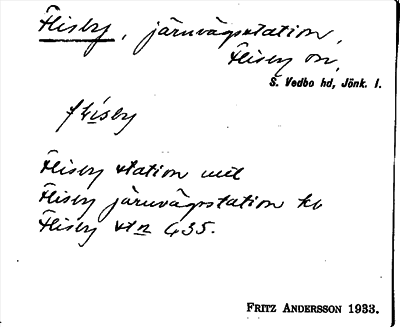 Flisby, järnvägsstation,
Flisby sn,
S. Vedbo hd, Jönk. l.
flisby
Flisby station uul
Flisby järnvägsstation kb
Flisby st n 435.
FRITZ ANDERSSON 1933.